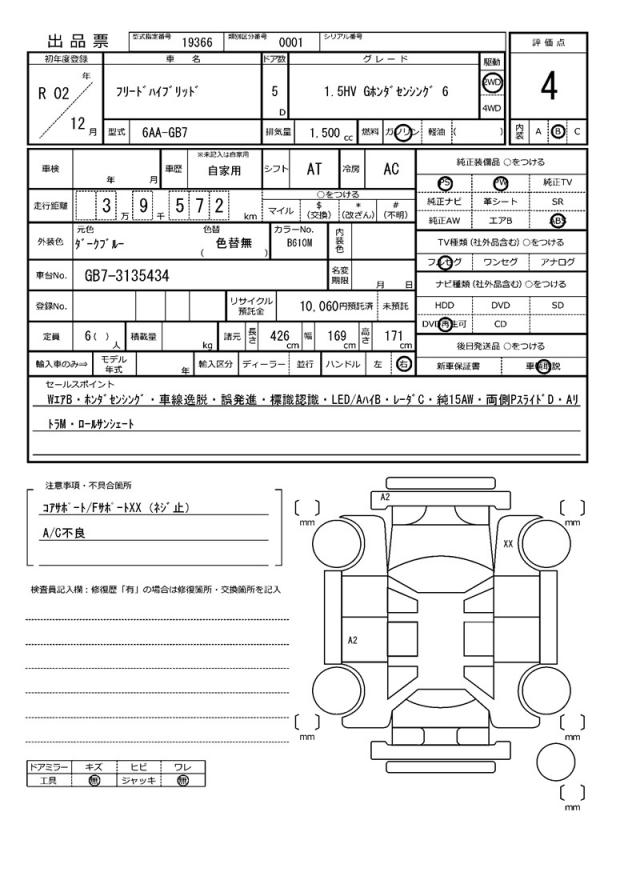 出品票 型式指定番号 19366 類別区分番号 0001 シリアル番号
評価点
4
初年度登録 車名 ドア数 グレード 駆動
R 02 年 12 月
フリードハイブリッド 5 D 1.5HV Gホンダセンシング 6 2WD 4WD
型式 6AA-GB7 排気量 1.500 cc 燃料 ガソリン 軽油 ( )
内装 A B C
車検 年 月 車歴 ※未記入は自家用 自家用 シフト AT 冷房 AC
走行距離 3 万 9 千 5 7 2 km
○をつける
マイル $(交換) *(改ざん) #(不明)
外装色 元色 ダークブルー 色替 色替無 ( ) カラーNo. B610M 内装色
車台No. GB7-3135434 名変期限 月 日
登録No. リサイクル預託金 10,060円預託済 未預託
定員 6( )人 積載量 kg 諸元 長さ 426 cm 幅 169 cm 高さ 171 cm
輸入車のみ⇒ モデル年式 年 輸入区分 ディーラー 並行 ハンドル 左 右
純正装備品 ○をつける
PS PW 純正TV
純正ナビ 革シート SR
純正AW エアB ABS
TV種類 (社外品含む) ○をつける
フルセグ ワンセグ アナログ
ナビ種類 (社外品含む) ○をつける
HDD DVD SD
DVD再生可 CD
後日発送品 ○をつける
新車保証書 車輌取説
セールスポイント
WエアB・ホンダセンシング・車線逸脱・誤発進・標識認識・LED/AハイB・レーダC・純15AW・両側PスライドD・Aリ
トラM・ロールサンシェート
注意事項・不具合箇所
コアサポート/FサポートXX (ネジ止)
A/C不良
検査員記入欄：修復歴「有」の場合は修復箇所・交換箇所を記入
A2
mm
mm
XX
A2
mm
mm
mm
ドアミラー キズ ヒビ ワレ
工具 無 ジャッキ 無